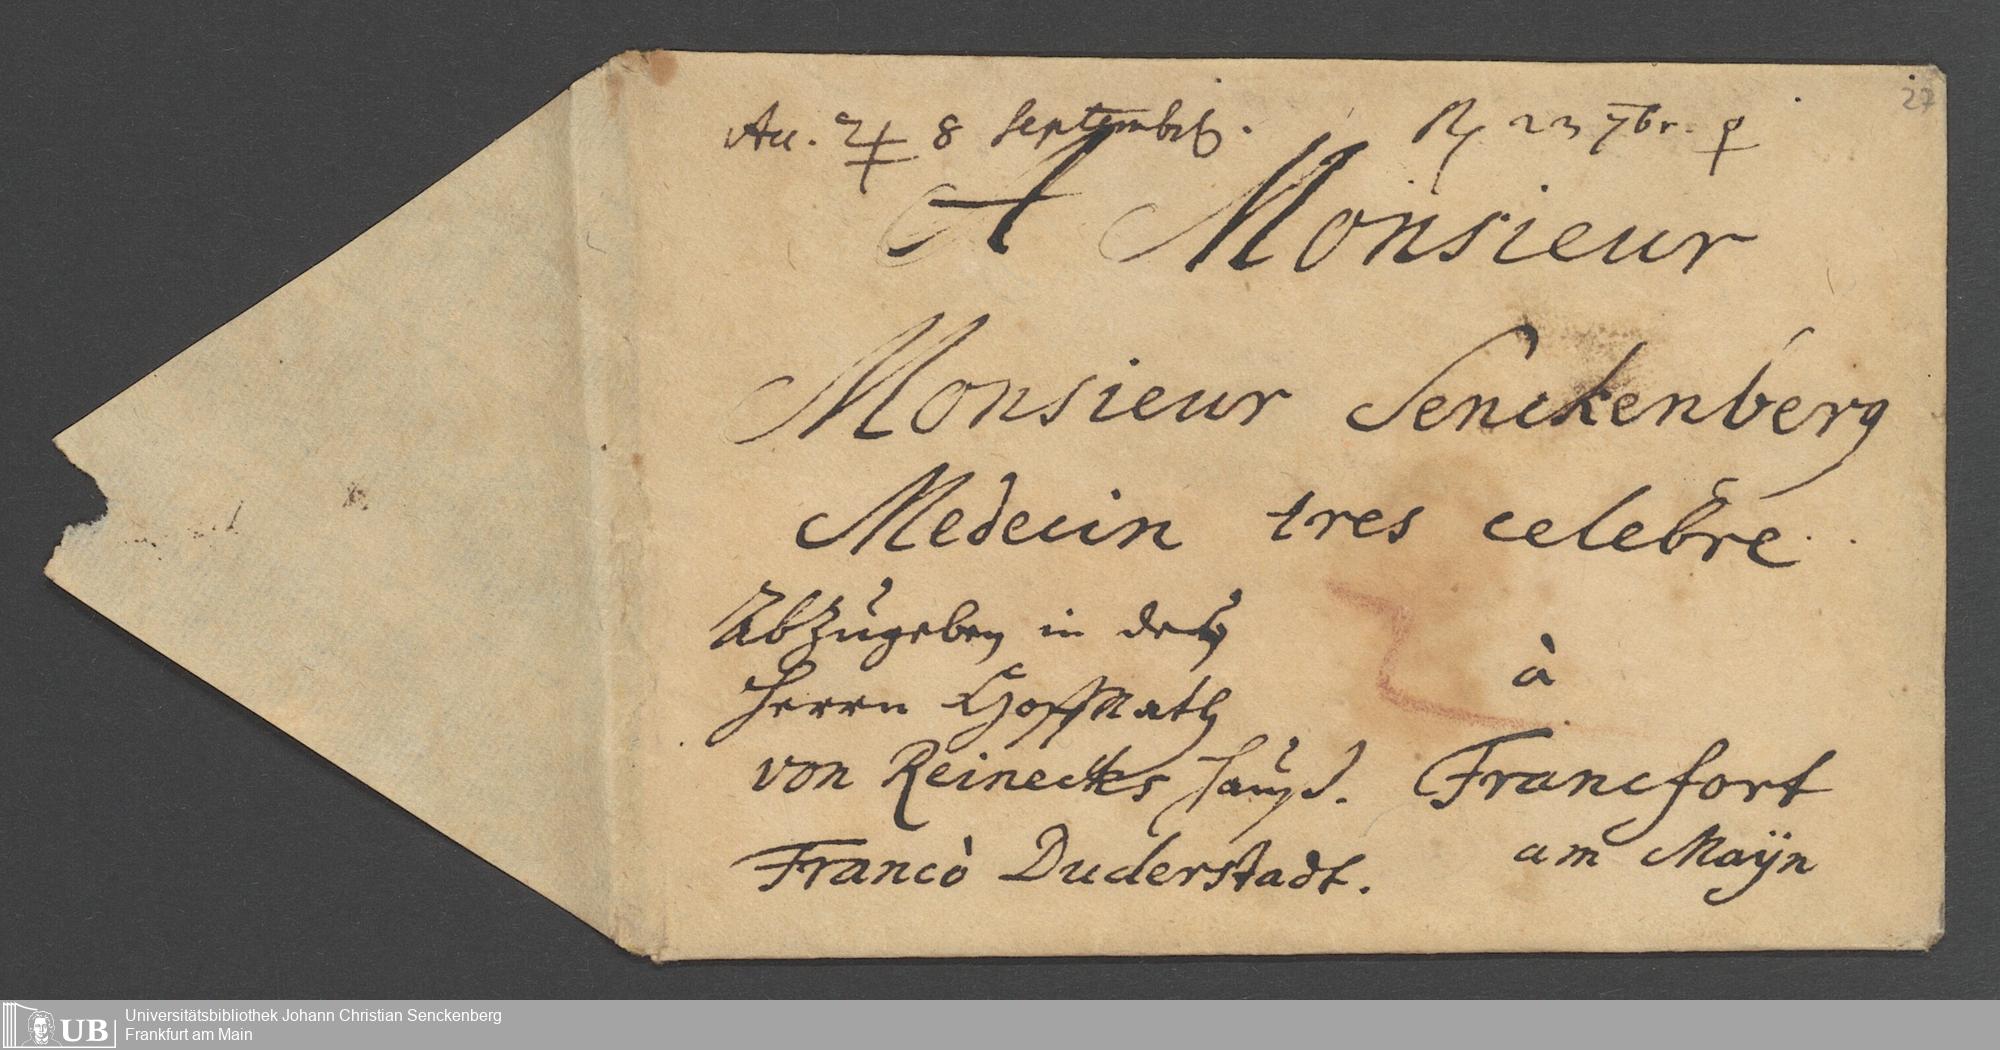 Acc. ♃ 8 Septembris. R 23 7br. ♀
27
A Monsieur
Monsieur Senckenberg
Medecin tres celebre.
Abzugeben in des
Herrn HoffRath
von Reinecks Hauß.
à
Francfort
am Maÿn
Franco Duderstadt.
UB
Universitätsbibliothek Johann Christian Senckenberg
Frankfurt am Main